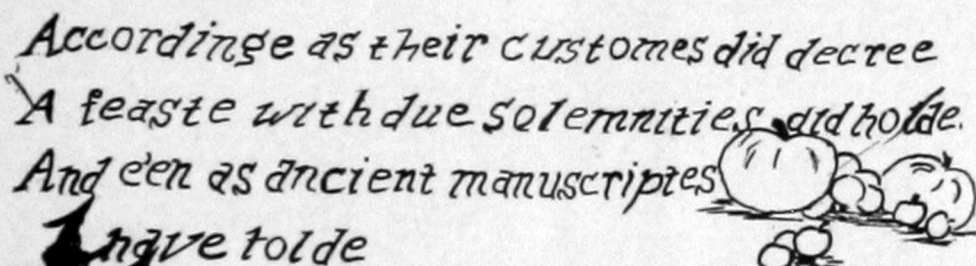 Accordinge as their customes did decree
A feaste with due solemnities did holde.
And e'en as ancient manuscriptes
have tolde